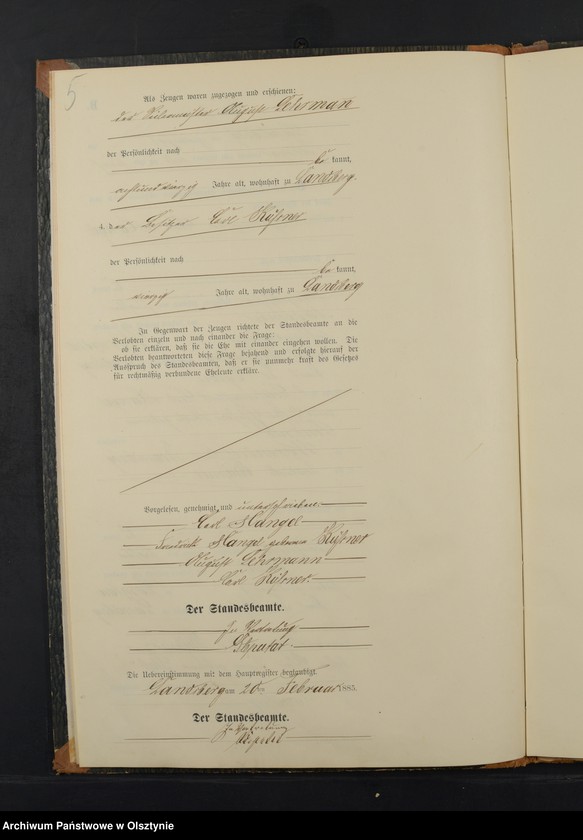 5
Als Zeugen waren zugezogen und erschienen:
der August Lehrman
der Persönlichkeit nach
be kannt,
achtundvierzig Jahre alt, wohnhaft zu Landsberg
4. der Besitzer Carl
der Persönlichkeit nach
be kannt,
vierzig Jahre alt, wohnhaft zu Landsberg
In Gegenwart der Zeugen richtete der Standesbeamte an die
Verlobten einzeln und nach einander die Frage:
ob sie erklären, daß sie die Ehe mit einander eingehen wollen. Die
Verlobten beantworteten diese Frage bejahend und erfolgte hierauf der
Ausspruch des Standesbeamten, daß er sie nunmehr kraft des Gesetzes
für rechtmäßig verbundene Eheleute erkläre.
Vorgelesen, genehmigt und unterschrieben
Carl Mangel
Mangel geborene
August Lehrmann
Carl
Der Standesbeamte.
In Vertretung
Die Uebereinstimmung mit dem Hauptregister beglaubigt.
Landsberg am 20ten Februar 1885.
Der Standesbeamte.
In Vertretung
Archiwum Państwowe w Olsztynie